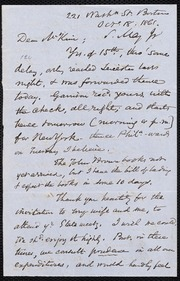 221 Wash'n St. Boston
Oct. 18. 1861.
Dear McKim, S. May Jr
Yrs. of 15th, thro' some
delay, only reached Leicester last
night, & was forwarded thence
today. Garrison recd. yours with
the check, all right, and starts
tomorrow (morning or p.m)
for New York. thence Phil. wards
on Tuesday I believe.
The John Brown books not
yet arrived, but I have the bill of lading
& expect the books in some 10 days.
Thank you heartily for the
invitation to my wife and me to
attend yr State meetg. I will
enjoy it highly. But, in these
times, we consult prudence in all our
expenditures, and would hardly feel